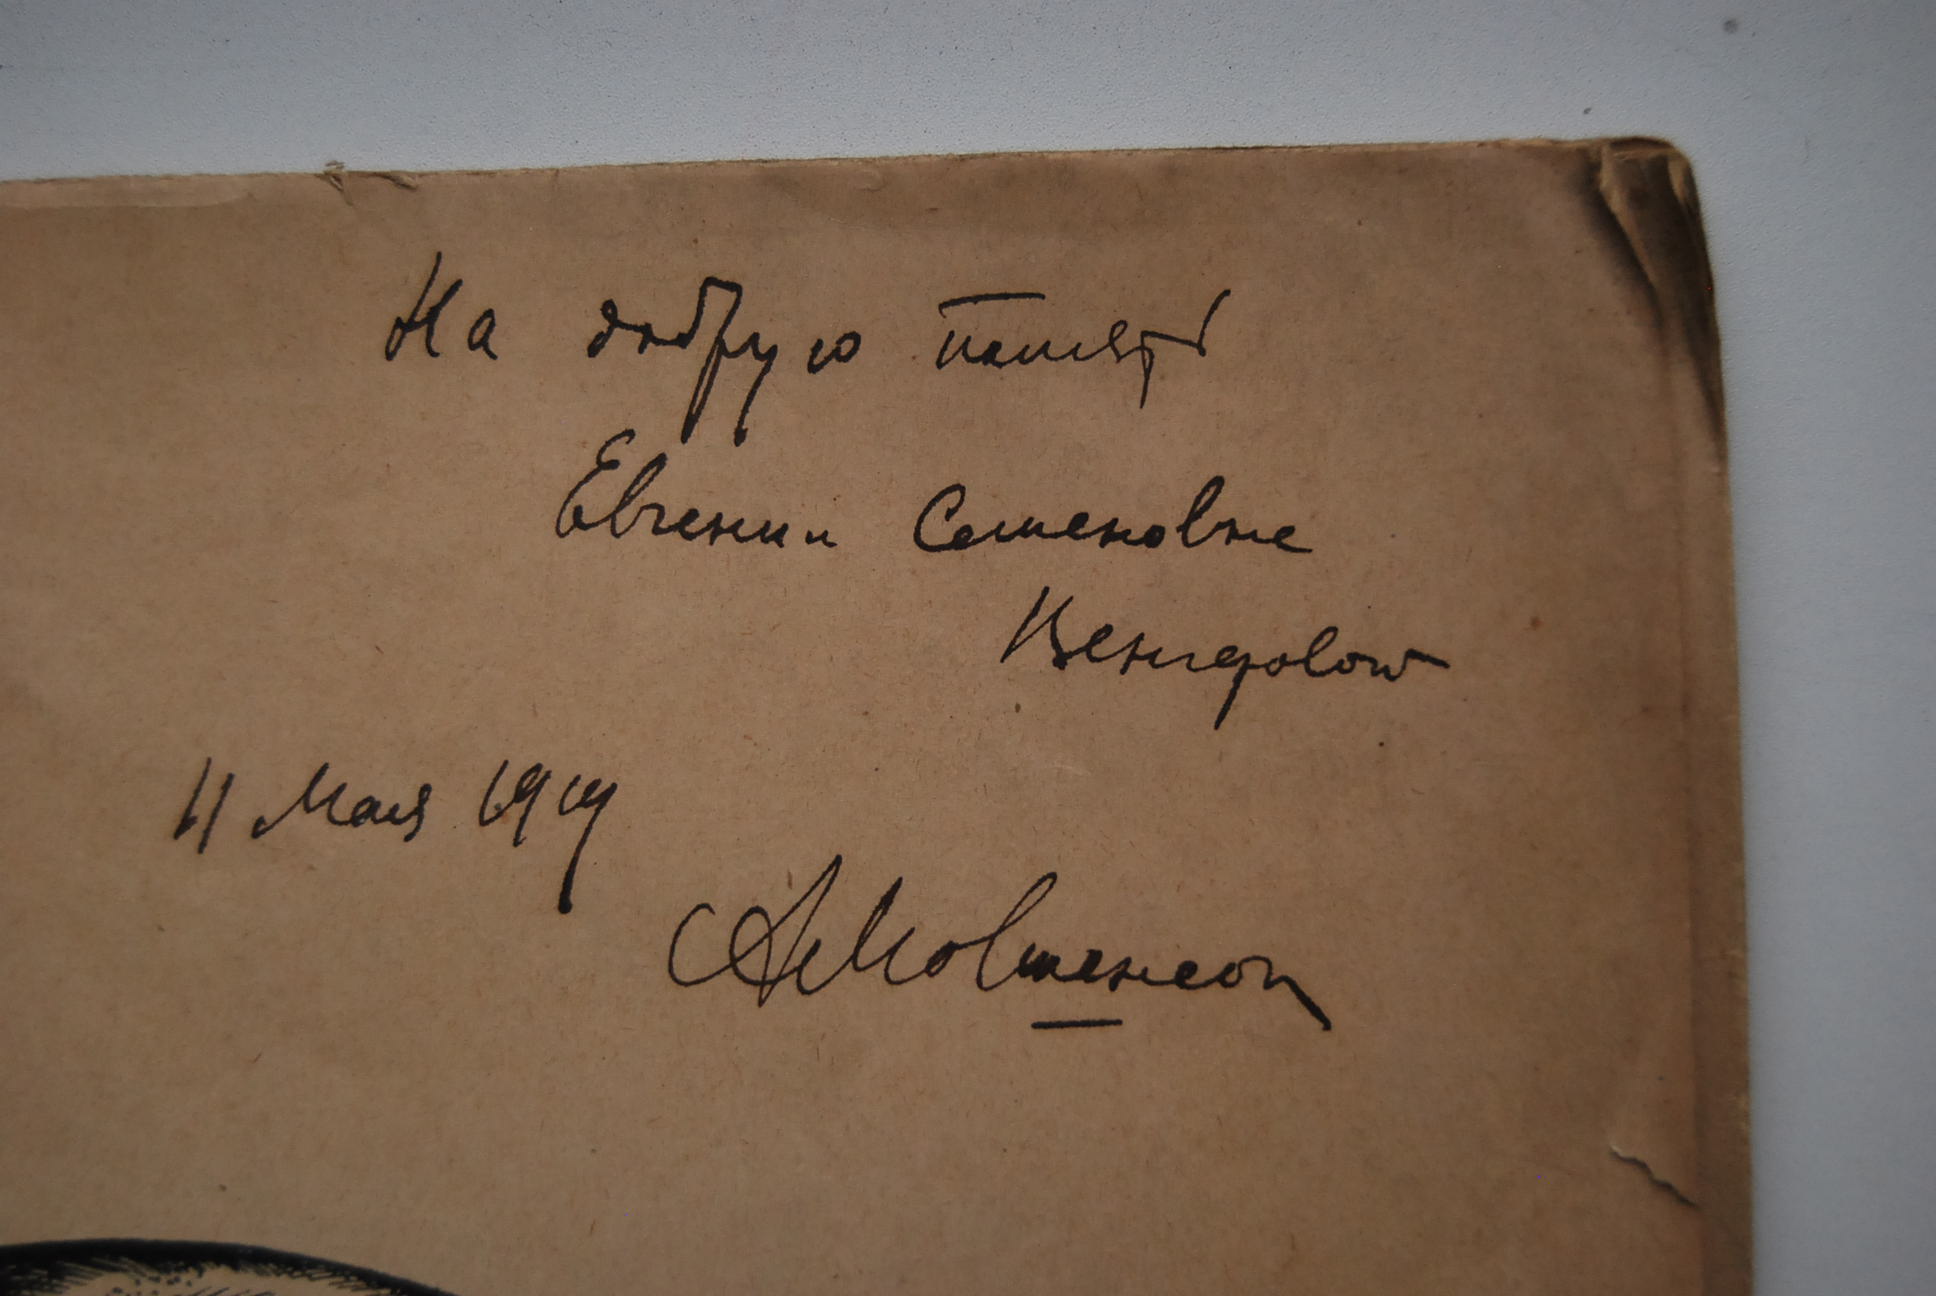 На добрую память
Евгении Семеновне
Венгеровой
11 Мая 1919
А Мовшенсон